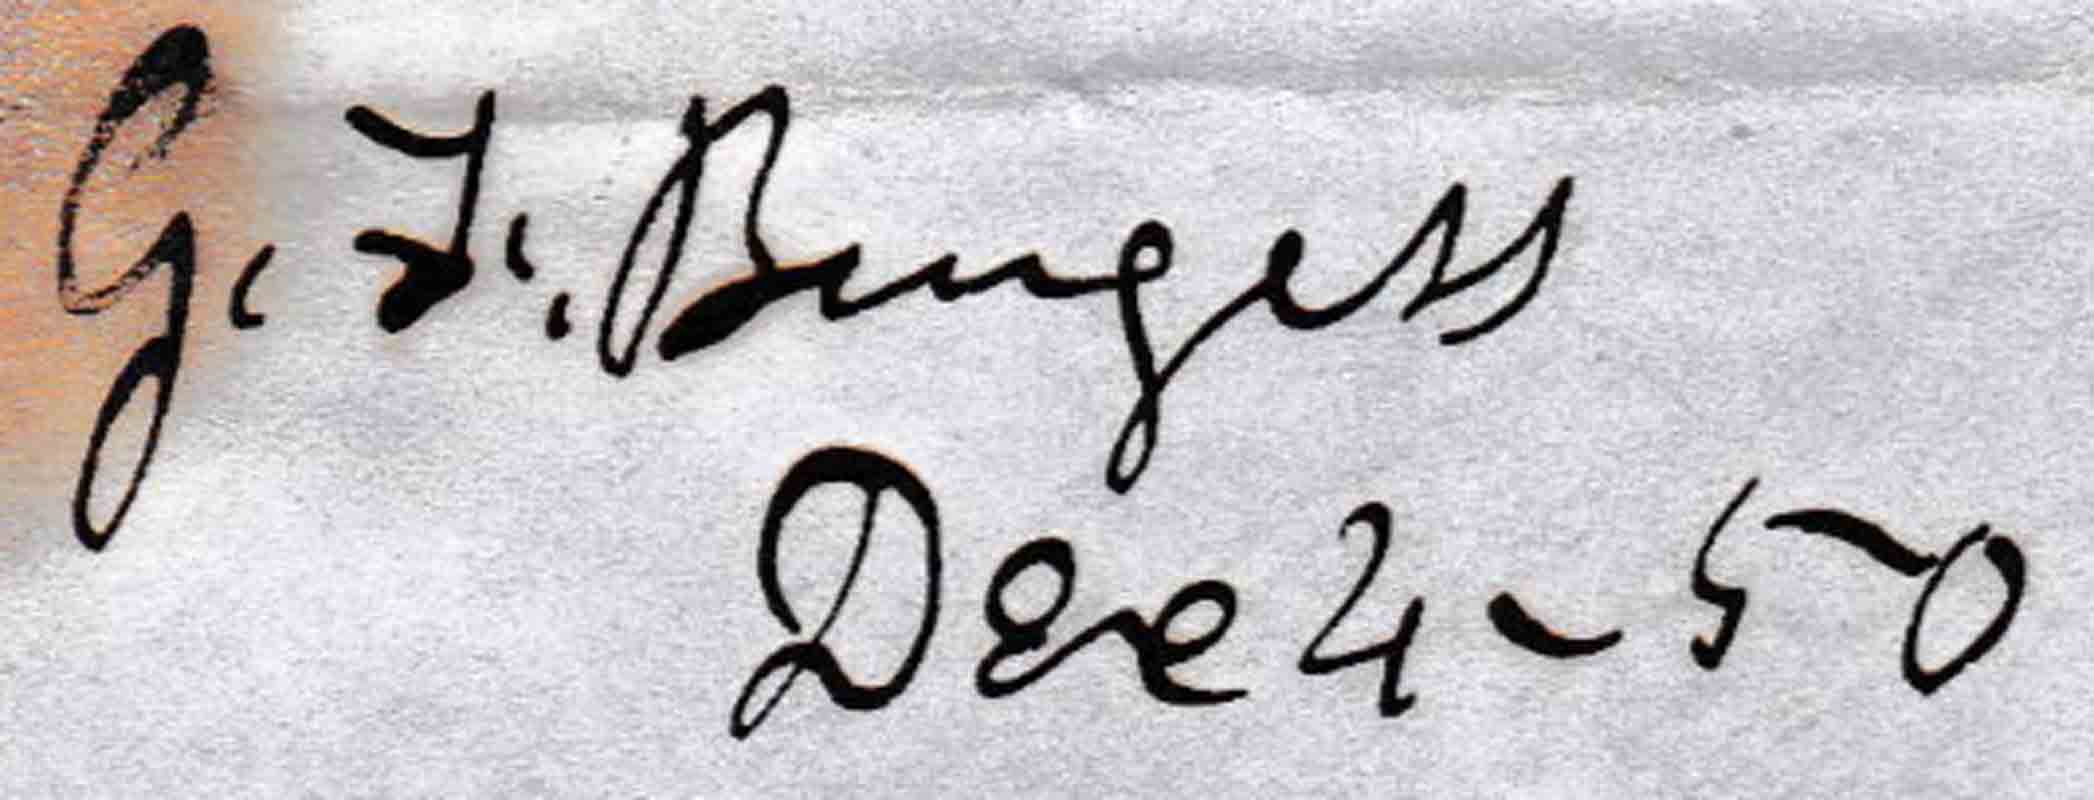 G. J. Burgess
Dec 4-50